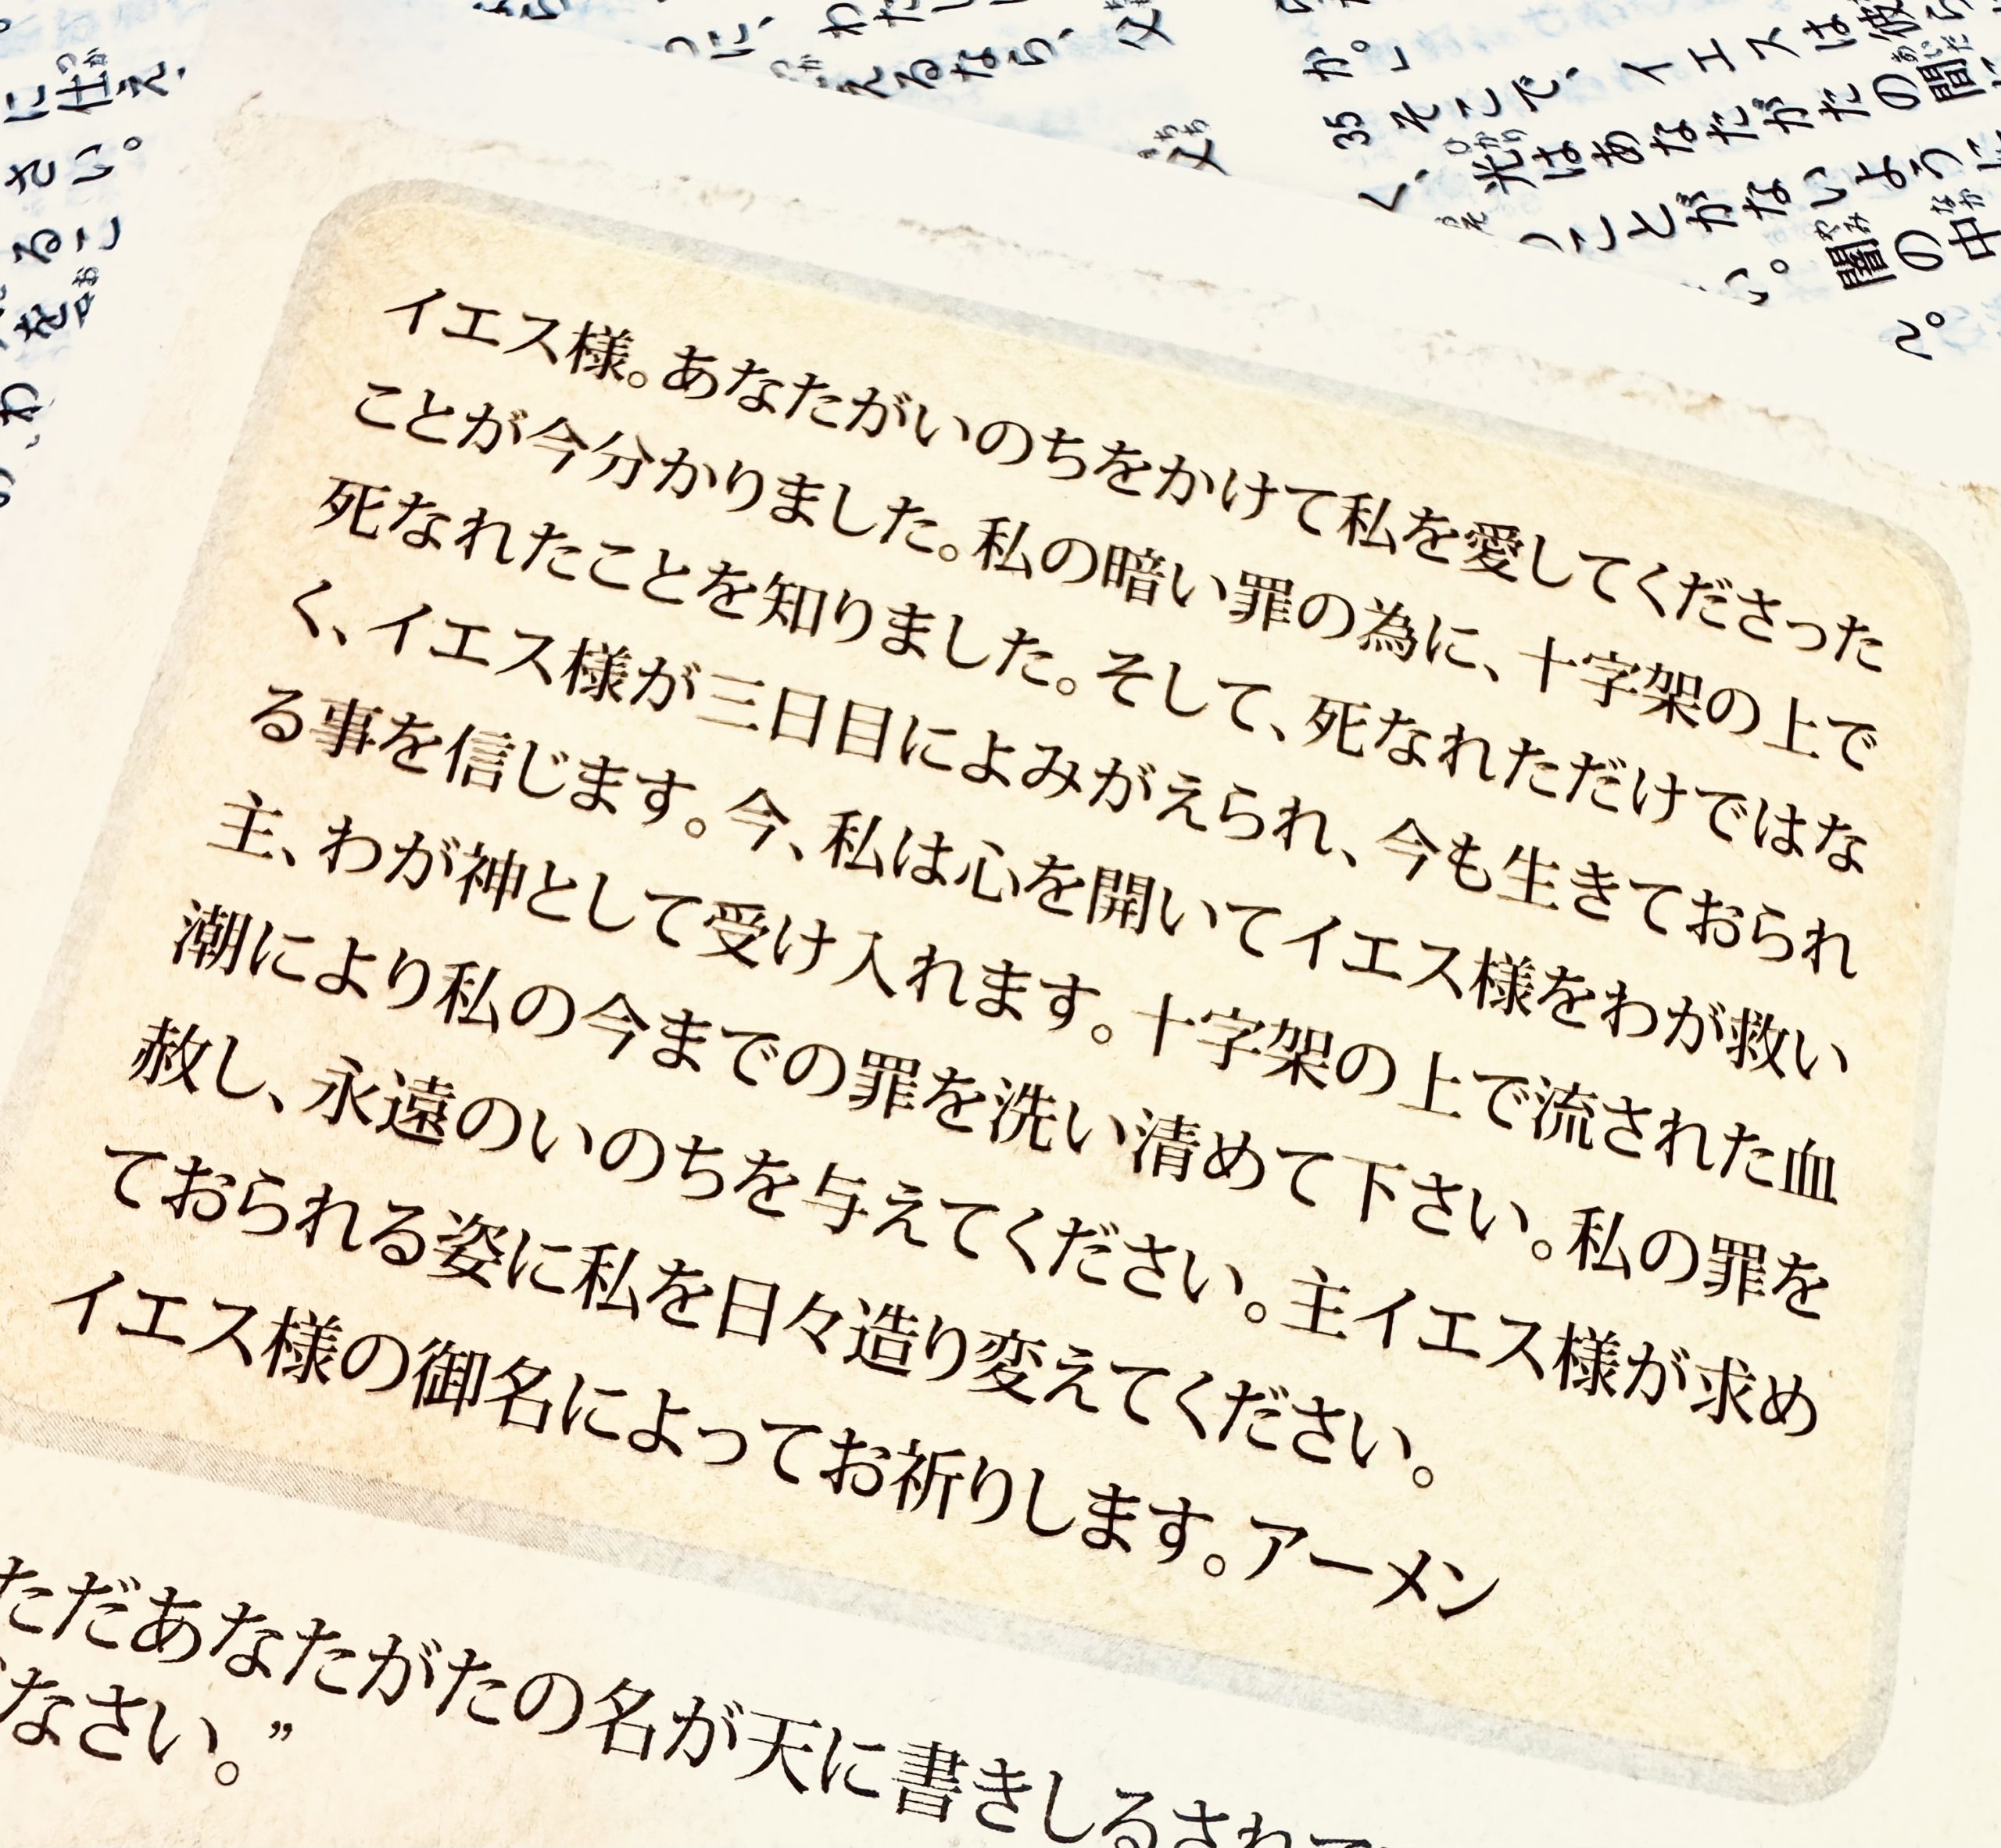 イエス様。あなたがいのちをかけて私を愛してくださった
ことが今分かりました。私の暗い罪の為に、十字架の上で
死なれたことを知りました。そして、死なれただけではな
く、イエス様が三日目によみがえられ、今も生きておられ
る事を信じます。今、私は心を開いてイエス様をわが救い
主、わが神として受け入れます。十字架の上で流された血
潮により私の今までの罪を洗い清めて下さい。私の罪を
赦し、永遠のいのちを与えてください。主イエス様が求め
ておられる姿に私を日々造り変えてください。
イエス様の御名によってお祈りします。アーメン
ただあなたがたの名が天に書きしるされて
なさい。”
35 そこで、イエスは彼
光はあなたがたの間に
ことがないように
闇の中に